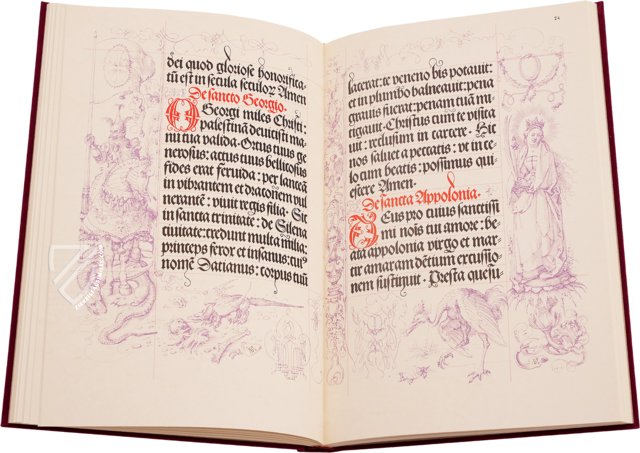 dei quod gloriose honorifica
tū est in secula seculoꝝ Amen
De sancto Georgio.
O Georgi miles Christi:
palestinā deuicisti ma
nu tua valida. Ortus tuus ge
nerosus: actus tuus bellicosus
fides erat feruida: per lanceā
in vibrantem et draconem vul
nerantē: viuit regis filia. Sit
in sancta trinitate: de Silena
ciuitate: credunt multa milia:
princeps feror et insanus: cui
nomē Dacianus: corpus tuū
24
lacerat: te veneno bis potauit:
et in plumbo balneauit: pena
grauis fuerat: penam tuā mi
tigauit. Christus cum te visita
uit: reclusum in carcere. Hic
nos saluet a peccatis: vt in ce
lo cum beatis: possimus qui
escere Amen.
De sancta Appolonia.
Deus pro cuius sanctissi
mi nois tui amore: be
ata appolonia virgo et mar
tir amaram dētium excussio
nem sustinuit. Presta quesu